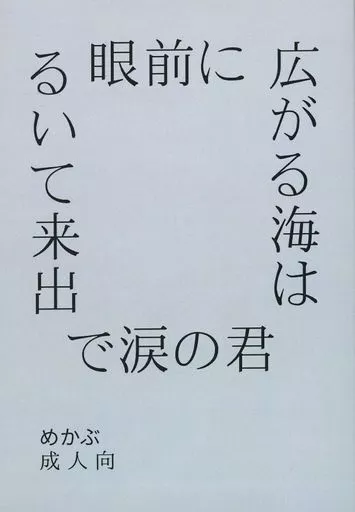 眼前に
広がる海は
君の涙で
出来ている
めかぶ
成人向